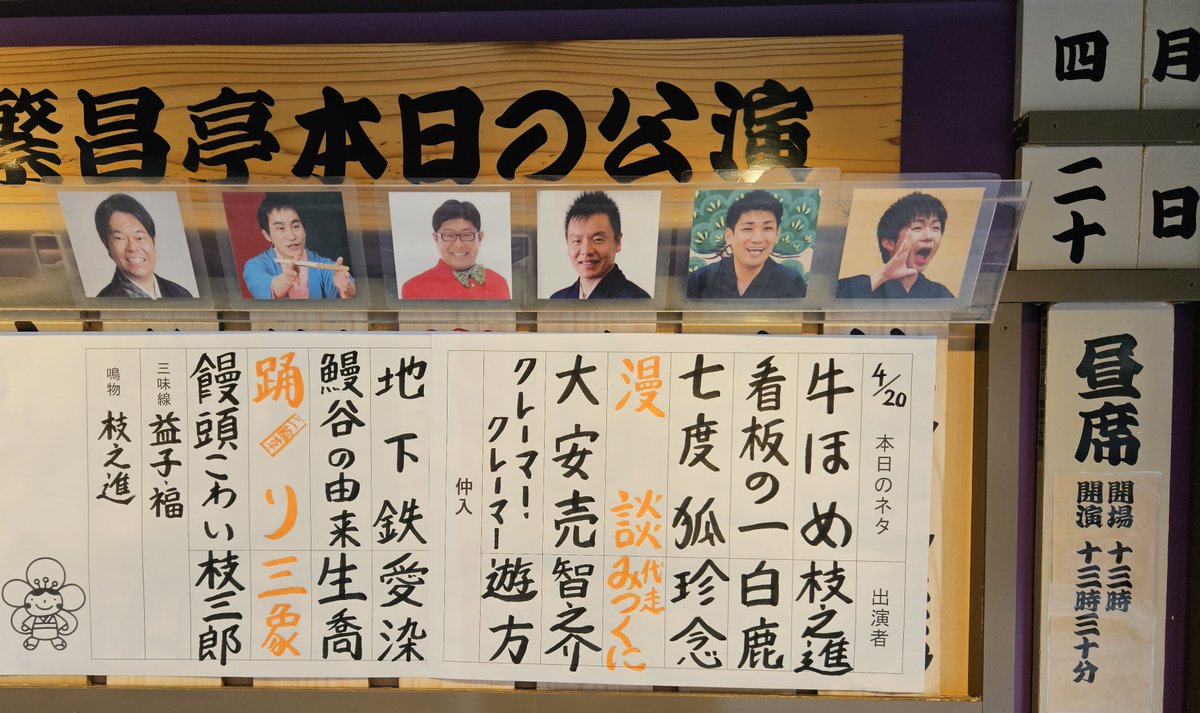 繁昌亭本日の公演
四月
二十日
昼席
開場 十三時
開演 十三時三十分
4/20 本日のネタ 出演者
牛ほめ 枝之進
看板の一 白鹿
七度狐 珍念
漫談 代走 みつくに
大安売 智之介
クレーマー、クレーマー 遊方
仲入
地下鉄 愛染
鰻谷の由来 生喬
踊り 三象
饅頭こわい 枝三郎
三味線 益子・福
鳴物 枝之進